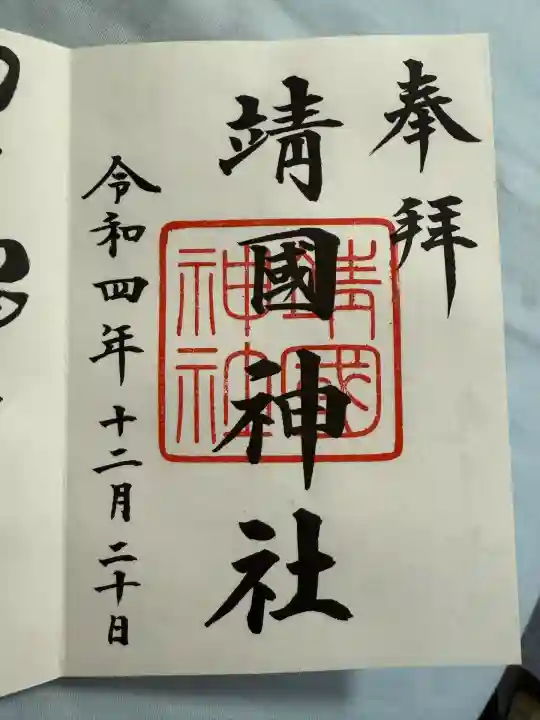 奉拜
靖國神社
靖國
神社
令和四年十二月二十日